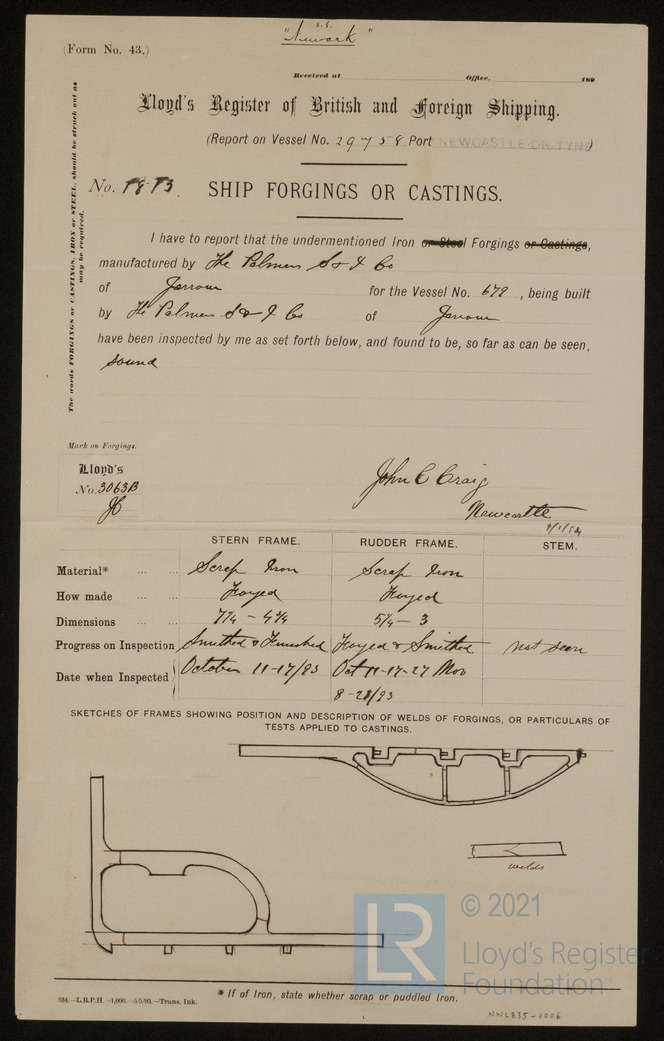 S.S.
"Newark"
(Form No. 43.)
Received at Office, 189
Lloyd's Register of British and Foreign Shipping.
(Report on Vessel No. 29758 Port NEWCASTLE-ON-TYNE)
The words FORGINGS or CASTINGS, IRON or STEEL, should be struck out as
may be required.
No. SHIP FORGINGS OR CASTINGS.
I have to report that the undermentioned Iron or Steel Forgings or Castings,
manufactured by The Palmers S & I Co
of Jarrow for the Vessel No. 679, being built
by The Palmers S & I Co of Jarrow
have been inspected by me as set forth below, and found to be, so far as can be seen,
sound
Mark on Forgings.
Lloyd's
No. 3063B
JC
John C Craig
Newcastle
STERN FRAME. RUDDER FRAME. STEM.
Material* Scrap Iron Scrap Iron
How made Forged Forged
Dimensions 7¼ - 4¾ 5¼ - 3
Progress on Inspection Smithed & Finished Forged & Smithed not seen
Date when Inspected October 11-17/93 Oct 11-17-27 Nov
8-28/93
SKETCHES OF FRAMES SHOWING POSITION AND DESCRIPTION OF WELDS OF FORGINGS, OR PARTICULARS OF
TESTS APPLIED TO CASTINGS.
welds
* If of Iron, state whether scrap or puddled Iron.
534.—L.R.P.H.—1,000.—5/5/93.—Trans. Ink.
LR
© 2021
Lloyd's Register
Foundation
NWL835-0006